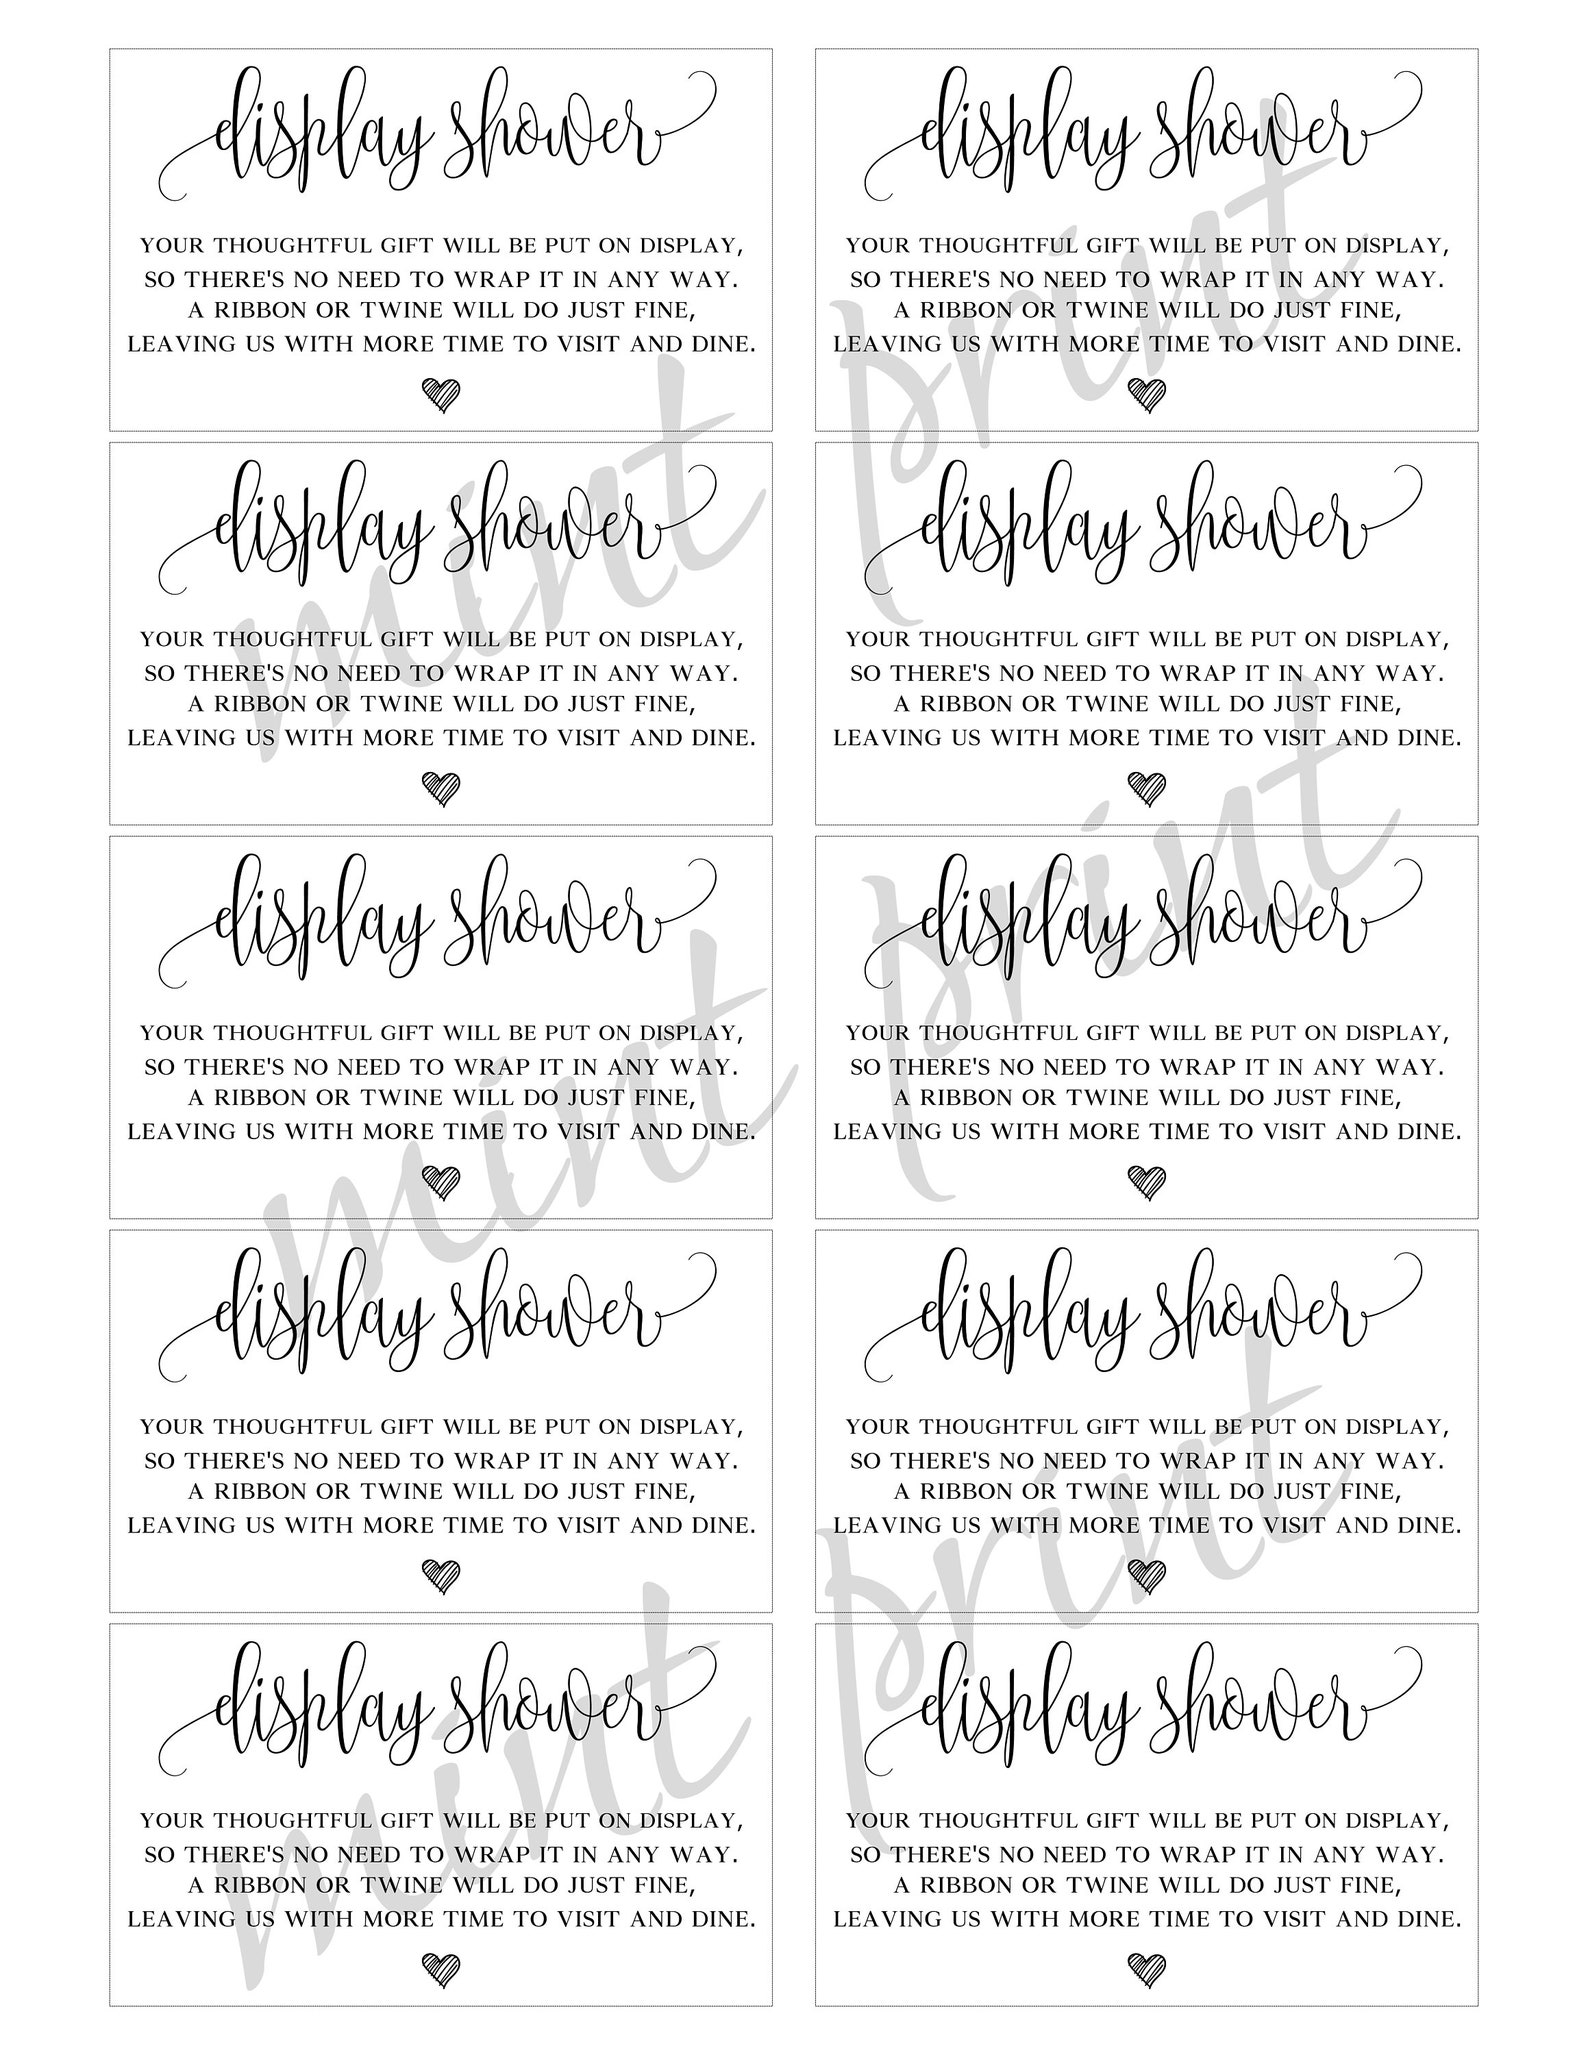 display shower
YOUR THOUGHTFUL GIFT WILL BE PUT ON DISPLAY,
SO THERE'S NO NEED TO WRAP IT IN ANY WAY.
A RIBBON OR TWINE WILL DO JUST FINE,
LEAVING US WITH MORE TIME TO VISIT AND DINE.
display shower
YOUR THOUGHTFUL GIFT WILL BE PUT ON DISPLAY,
SO THERE'S NO NEED TO WRAP IT IN ANY WAY.
A RIBBON OR TWINE WILL DO JUST FINE,
LEAVING US WITH MORE TIME TO VISIT AND DINE.
mint print
display shower
YOUR THOUGHTFUL GIFT WILL BE PUT ON DISPLAY,
SO THERE'S NO NEED TO WRAP IT IN ANY WAY.
A RIBBON OR TWINE WILL DO JUST FINE,
LEAVING US WITH MORE TIME TO VISIT AND DINE.
display shower
YOUR THOUGHTFUL GIFT WILL BE PUT ON DISPLAY,
SO THERE'S NO NEED TO WRAP IT IN ANY WAY.
A RIBBON OR TWINE WILL DO JUST FINE,
LEAVING US WITH MORE TIME TO VISIT AND DINE.
display shower
YOUR THOUGHTFUL GIFT WILL BE PUT ON DISPLAY,
SO THERE'S NO NEED TO WRAP IT IN ANY WAY.
A RIBBON OR TWINE WILL DO JUST FINE,
LEAVING US WITH MORE TIME TO VISIT AND DINE.
display shower
YOUR THOUGHTFUL GIFT WILL BE PUT ON DISPLAY,
SO THERE'S NO NEED TO WRAP IT IN ANY WAY.
A RIBBON OR TWINE WILL DO JUST FINE,
LEAVING US WITH MORE TIME TO VISIT AND DINE.
mint print
display shower
YOUR THOUGHTFUL GIFT WILL BE PUT ON DISPLAY,
SO THERE'S NO NEED TO WRAP IT IN ANY WAY.
A RIBBON OR TWINE WILL DO JUST FINE,
LEAVING US WITH MORE TIME TO VISIT AND DINE.
display shower
YOUR THOUGHTFUL GIFT WILL BE PUT ON DISPLAY,
SO THERE'S NO NEED TO WRAP IT IN ANY WAY.
A RIBBON OR TWINE WILL DO JUST FINE,
LEAVING US WITH MORE TIME TO VISIT AND DINE.
display shower
YOUR THOUGHTFUL GIFT WILL BE PUT ON DISPLAY,
SO THERE'S NO NEED TO WRAP IT IN ANY WAY.
A RIBBON OR TWINE WILL DO JUST FINE,
LEAVING US WITH MORE TIME TO VISIT AND DINE.
display shower
YOUR THOUGHTFUL GIFT WILL BE PUT ON DISPLAY,
SO THERE'S NO NEED TO WRAP IT IN ANY WAY.
A RIBBON OR TWINE WILL DO JUST FINE,
LEAVING US WITH MORE TIME TO VISIT AND DINE.
mint print